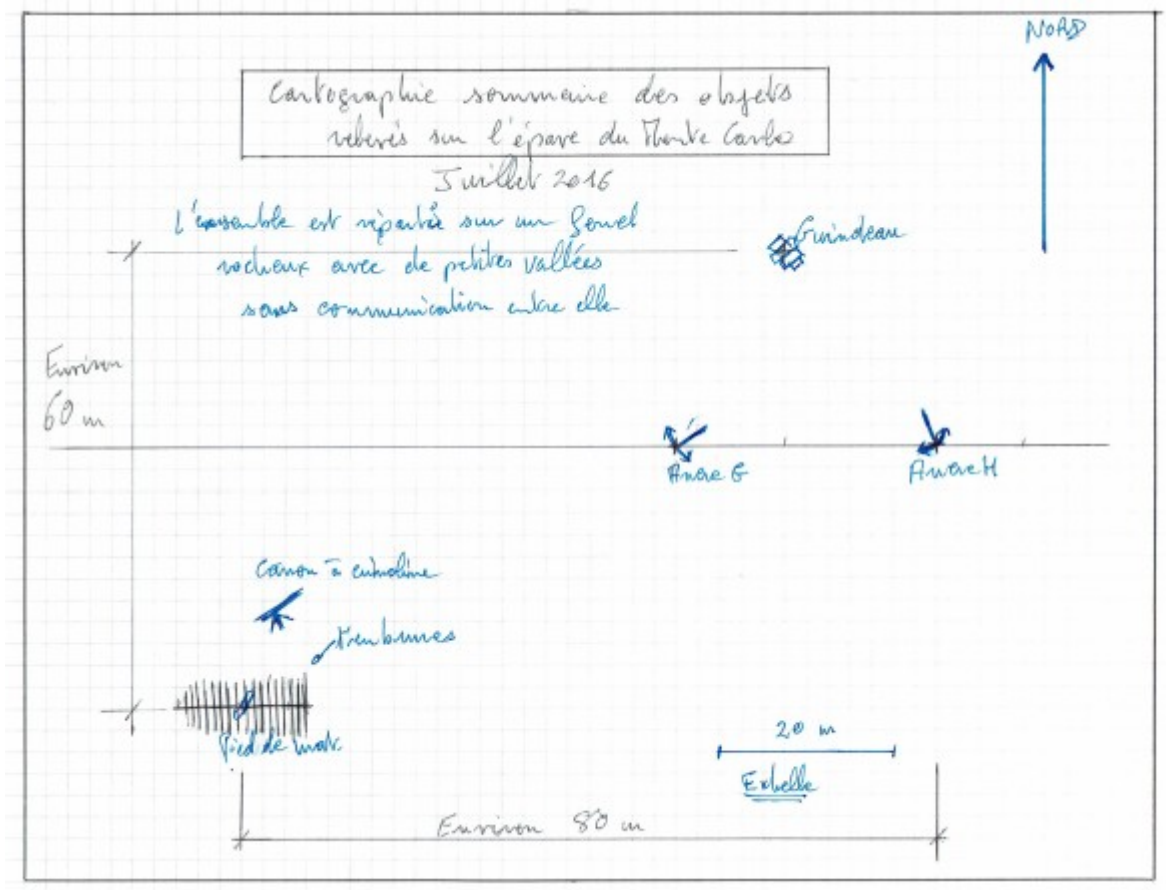 NORD
Cartographie sommaire des objets
relevés sur l'épave du Monte Carlo
Juillet 2016
L'ensemble est répartie sur un
rocheux avec de petites vallées
sans communication entre elle
Guindeau
Environ
60 m
Ancre G
Ancre H
Canon à
Pied de mat
20 m
Echelle
Environ 80 m